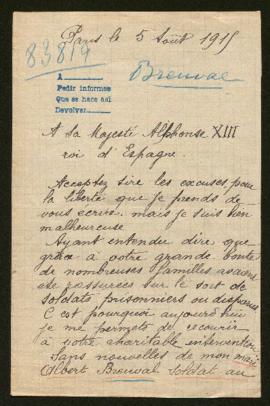 Paris le 5 Août 1915
83819
Brouval
A
Pedir informes
Que se hace así
Devolver
A Sa Majesté Alphonse XIII
roi d'Espagne.
Acceptez sire les excuses pour
la liberté que je prends de
vous ecrire mais je suis bien
malheureuse
Ayant entendu dire que
grâce à votre grande bonté
de nombreuses familles avaient
été rassurées sur le sort de
soldats prisonniers ou disparus
C est pourquoi aujourd'hui
je me permets de recourir
à votre charitable intervention
Sans nouvelles de mon mari
Albert Brouval Soldat au